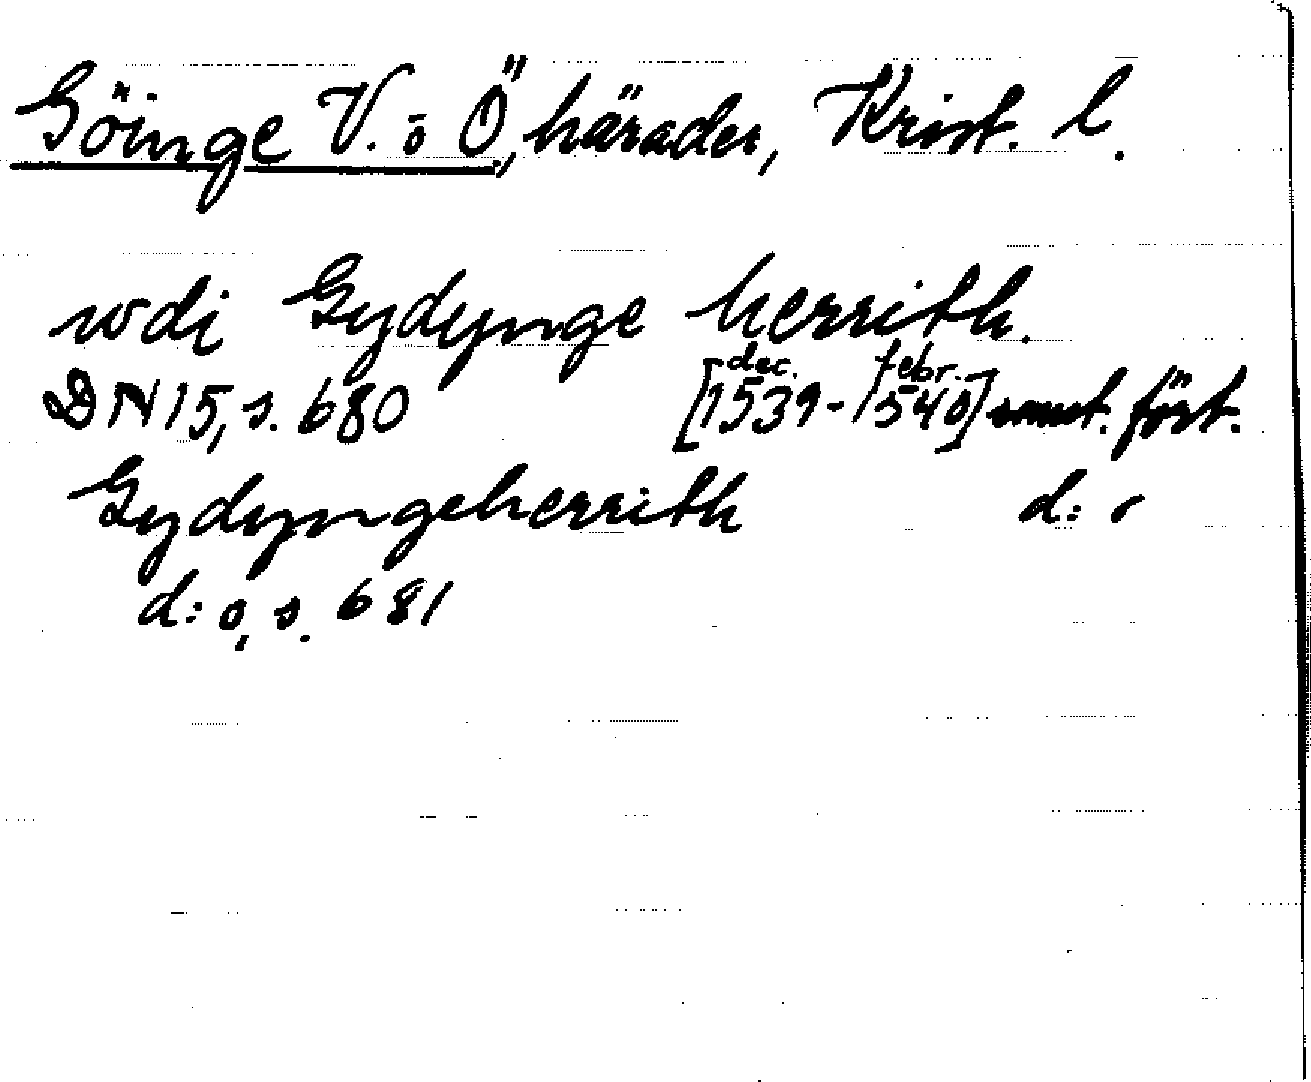 Göinge V. o Ö, härader, Krist. l.
wdi Gydynge herrith.
DN 15, s. 680 [dec. 1539 - febr. 1540] först.
Gydyngeherrith d: o
d: o, s. 681